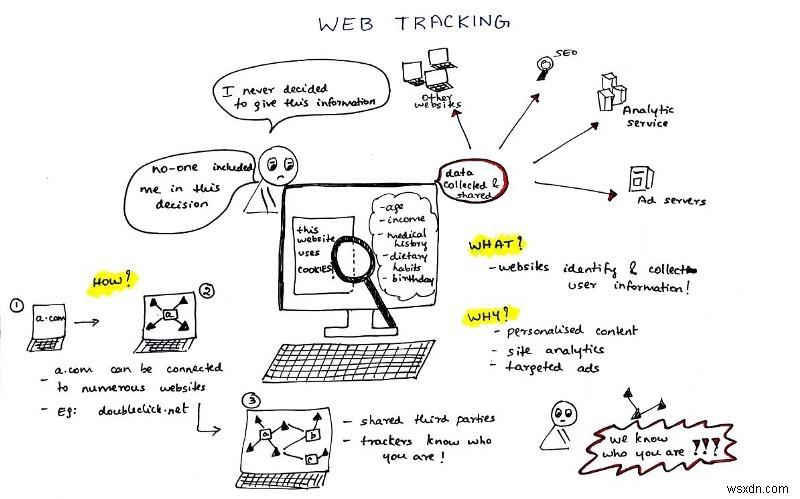 WEB TRACKING
I never decided
to give this information
no-one included
me in this
decision
Other
websites
SEO
Analytic
service
Ad servers
data
collected &
shared
this
website
uses
COOKIES!
- age
- income
- medical
history
- dietary
habits
- birthday
WHAT?
- websites identify & collect
user information!
WHY?
- personalised content
- site analytics
- targeted ads
HOW?
1
a.com
2
a
- a.com can be connected
to numerous websites
- Eg: doubleclick.net
3
a
b
c
- shared third parties
- trackers know who
you are!
we know
who you are ???
wsxdn.com